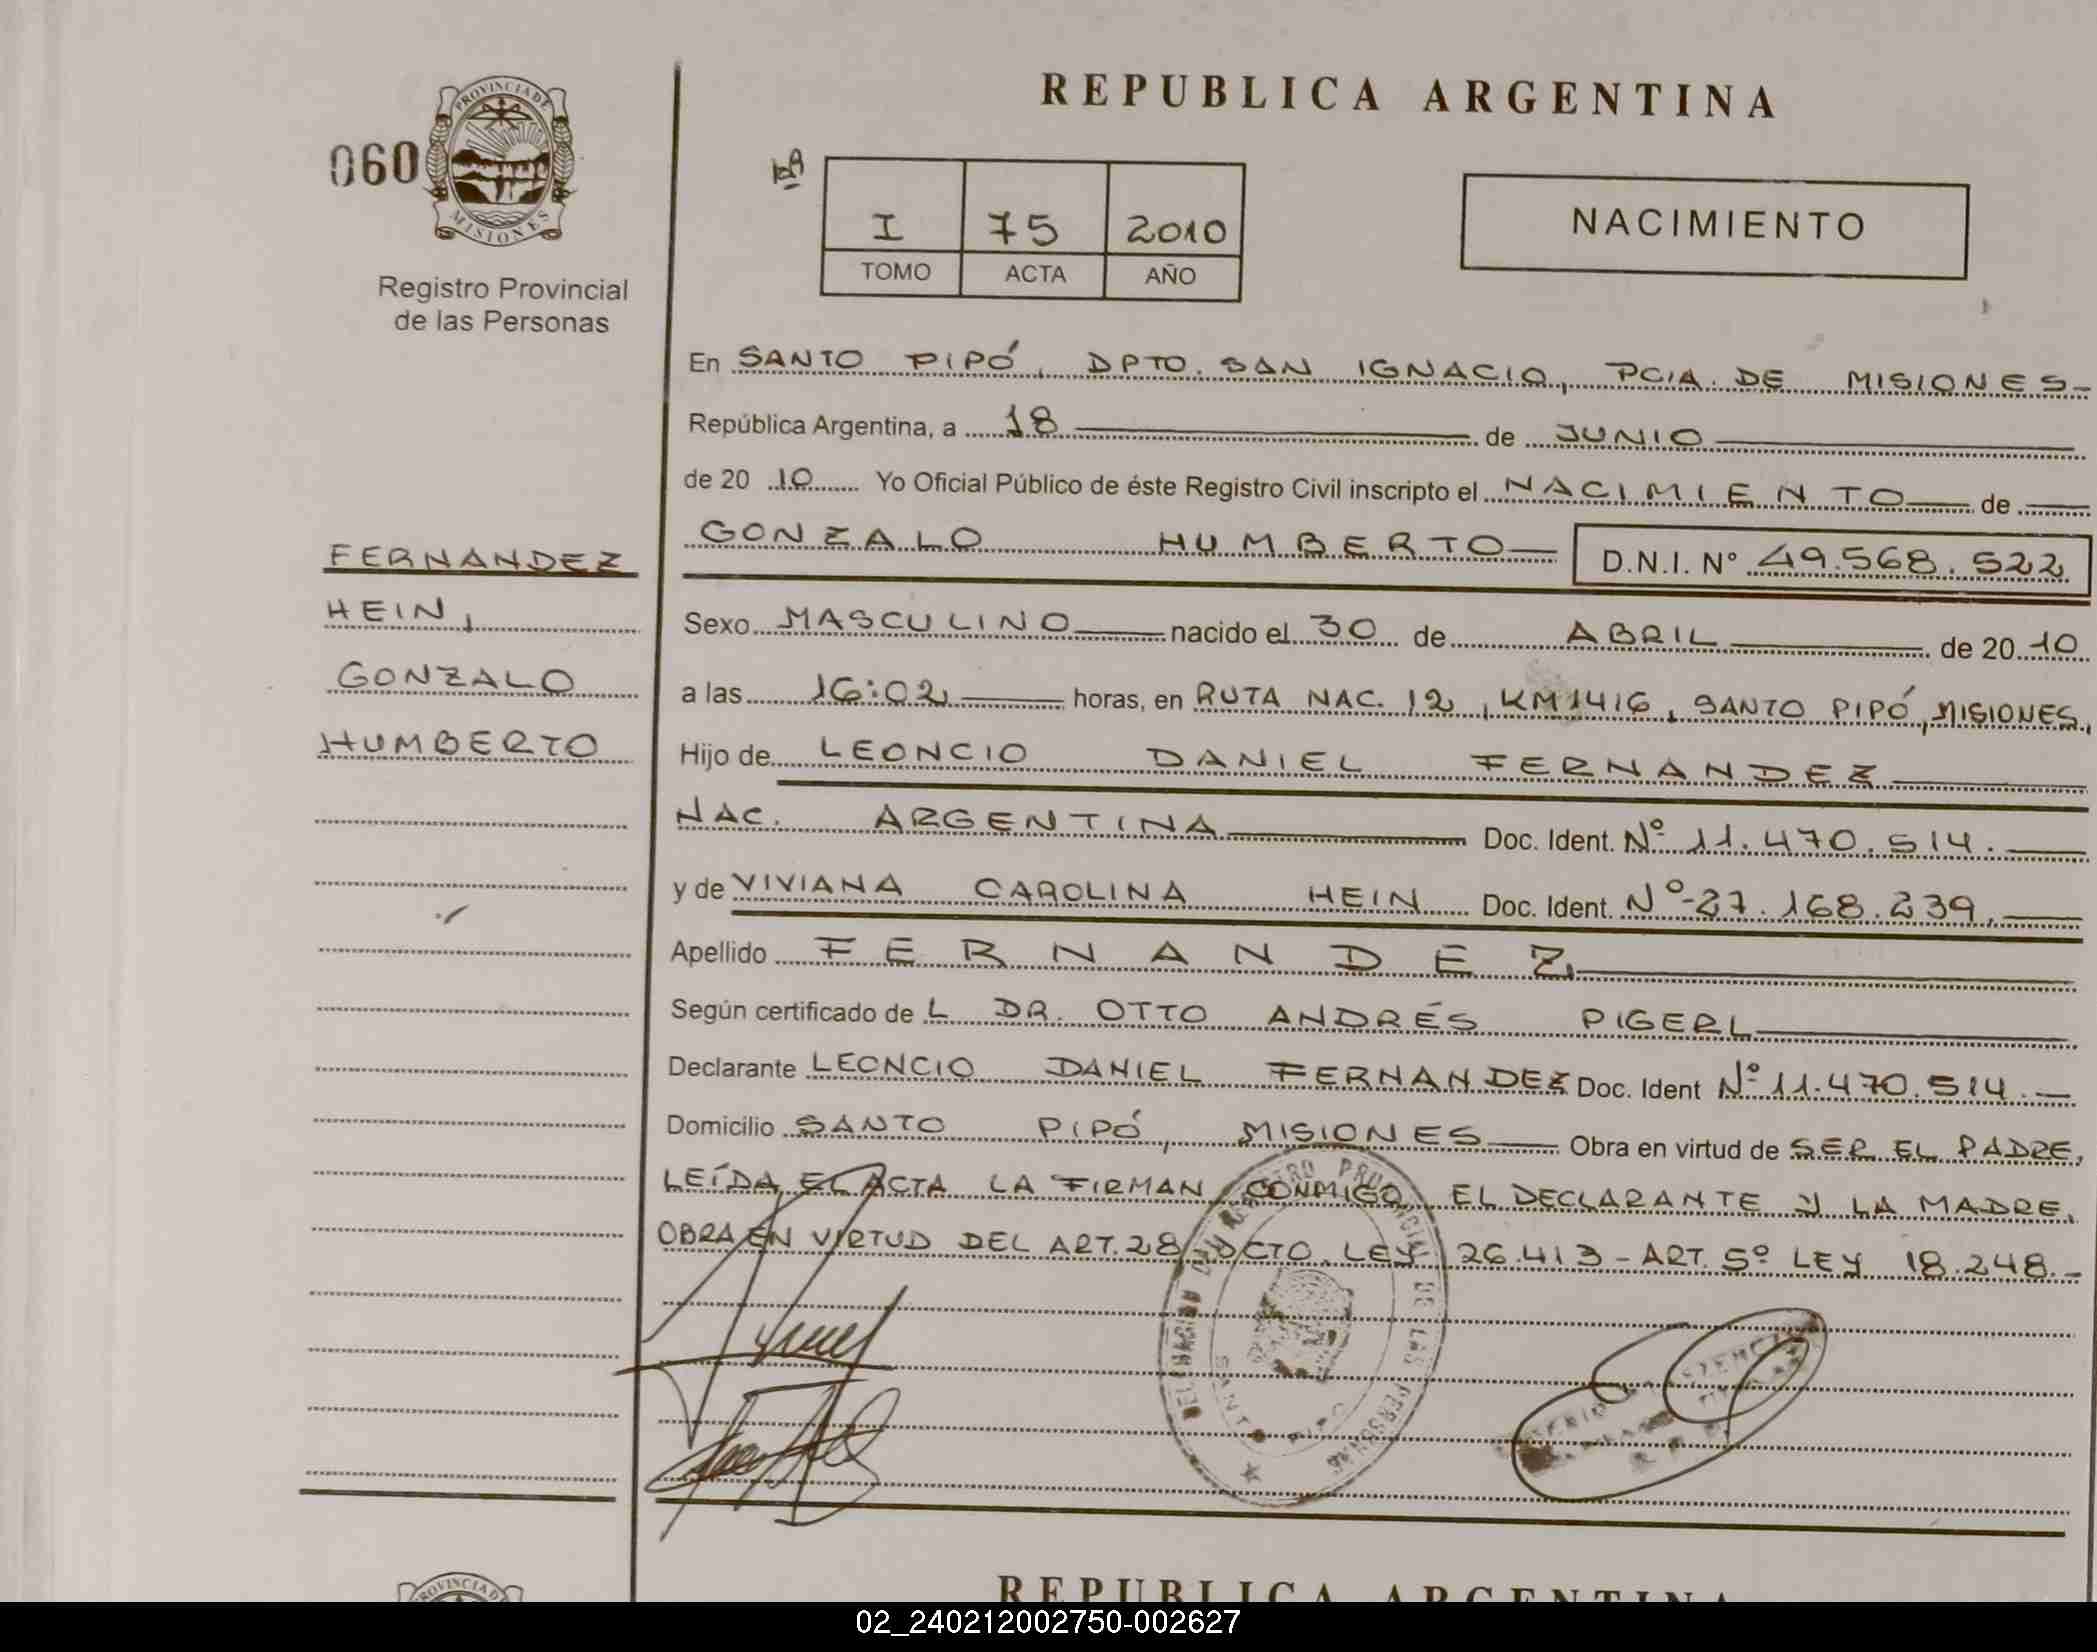 REPUBLICA ARGENTINA
060
PROVINCIA DE
MISIONES
Registro Provincial
de las Personas
I 75 2010
TOMO ACTA AÑO
NACIMIENTO
En SANTO PIPÓ, DPTO. SAN IGNACIO, PCIA. DE MISIONES-
República Argentina, a 18 de JUNIO
de 20 10 Yo Oficial Público de éste Registro Civil inscripto el NACIMIENTO de
GONZALO HUMBERTO D.N.I. Nº 49.568.522
FERNANDEZ
HEIN,
GONZALO
HUMBERTO
Sexo MASCULINO nacido el 30 de ABRIL de 20 10
a las 16:02 horas, en RUTA NAC. 12, KM 1416, SANTO PIPÓ, MISIONES,
Hijo de LEONCIO DANIEL FERNANDEZ
NAC. ARGENTINA Doc. Ident. Nº 11.470.514.
y de VIVIANA CAROLINA HEIN Doc. Ident. Nº-27.168.239,
Apellido FERNANDEZ
Según certificado de L DR. OTTO ANDRÉS PIGERL
Declarante LEONCIO DANIEL FERNANDEZ Doc. Ident Nº 11.470.514.-
Domicilio SANTO PIPÓ, MISIONES Obra en virtud de SER EL PADRE,
LEÍDA EL ACTA LA FIRMAN CONMIGO EL DECLARANTE Y LA MADRE.
OBRA EN VIRTUD DEL ART. 28 DCTO. LEY 26.413 - ART. 5º LEY 18.248.-
REGISTRO PROVINCIAL DE LAS PERSONAS
SANTO PIPO
PROVINCIA DE
REPUBLICA ARGENTINA
02_240212002750-002627